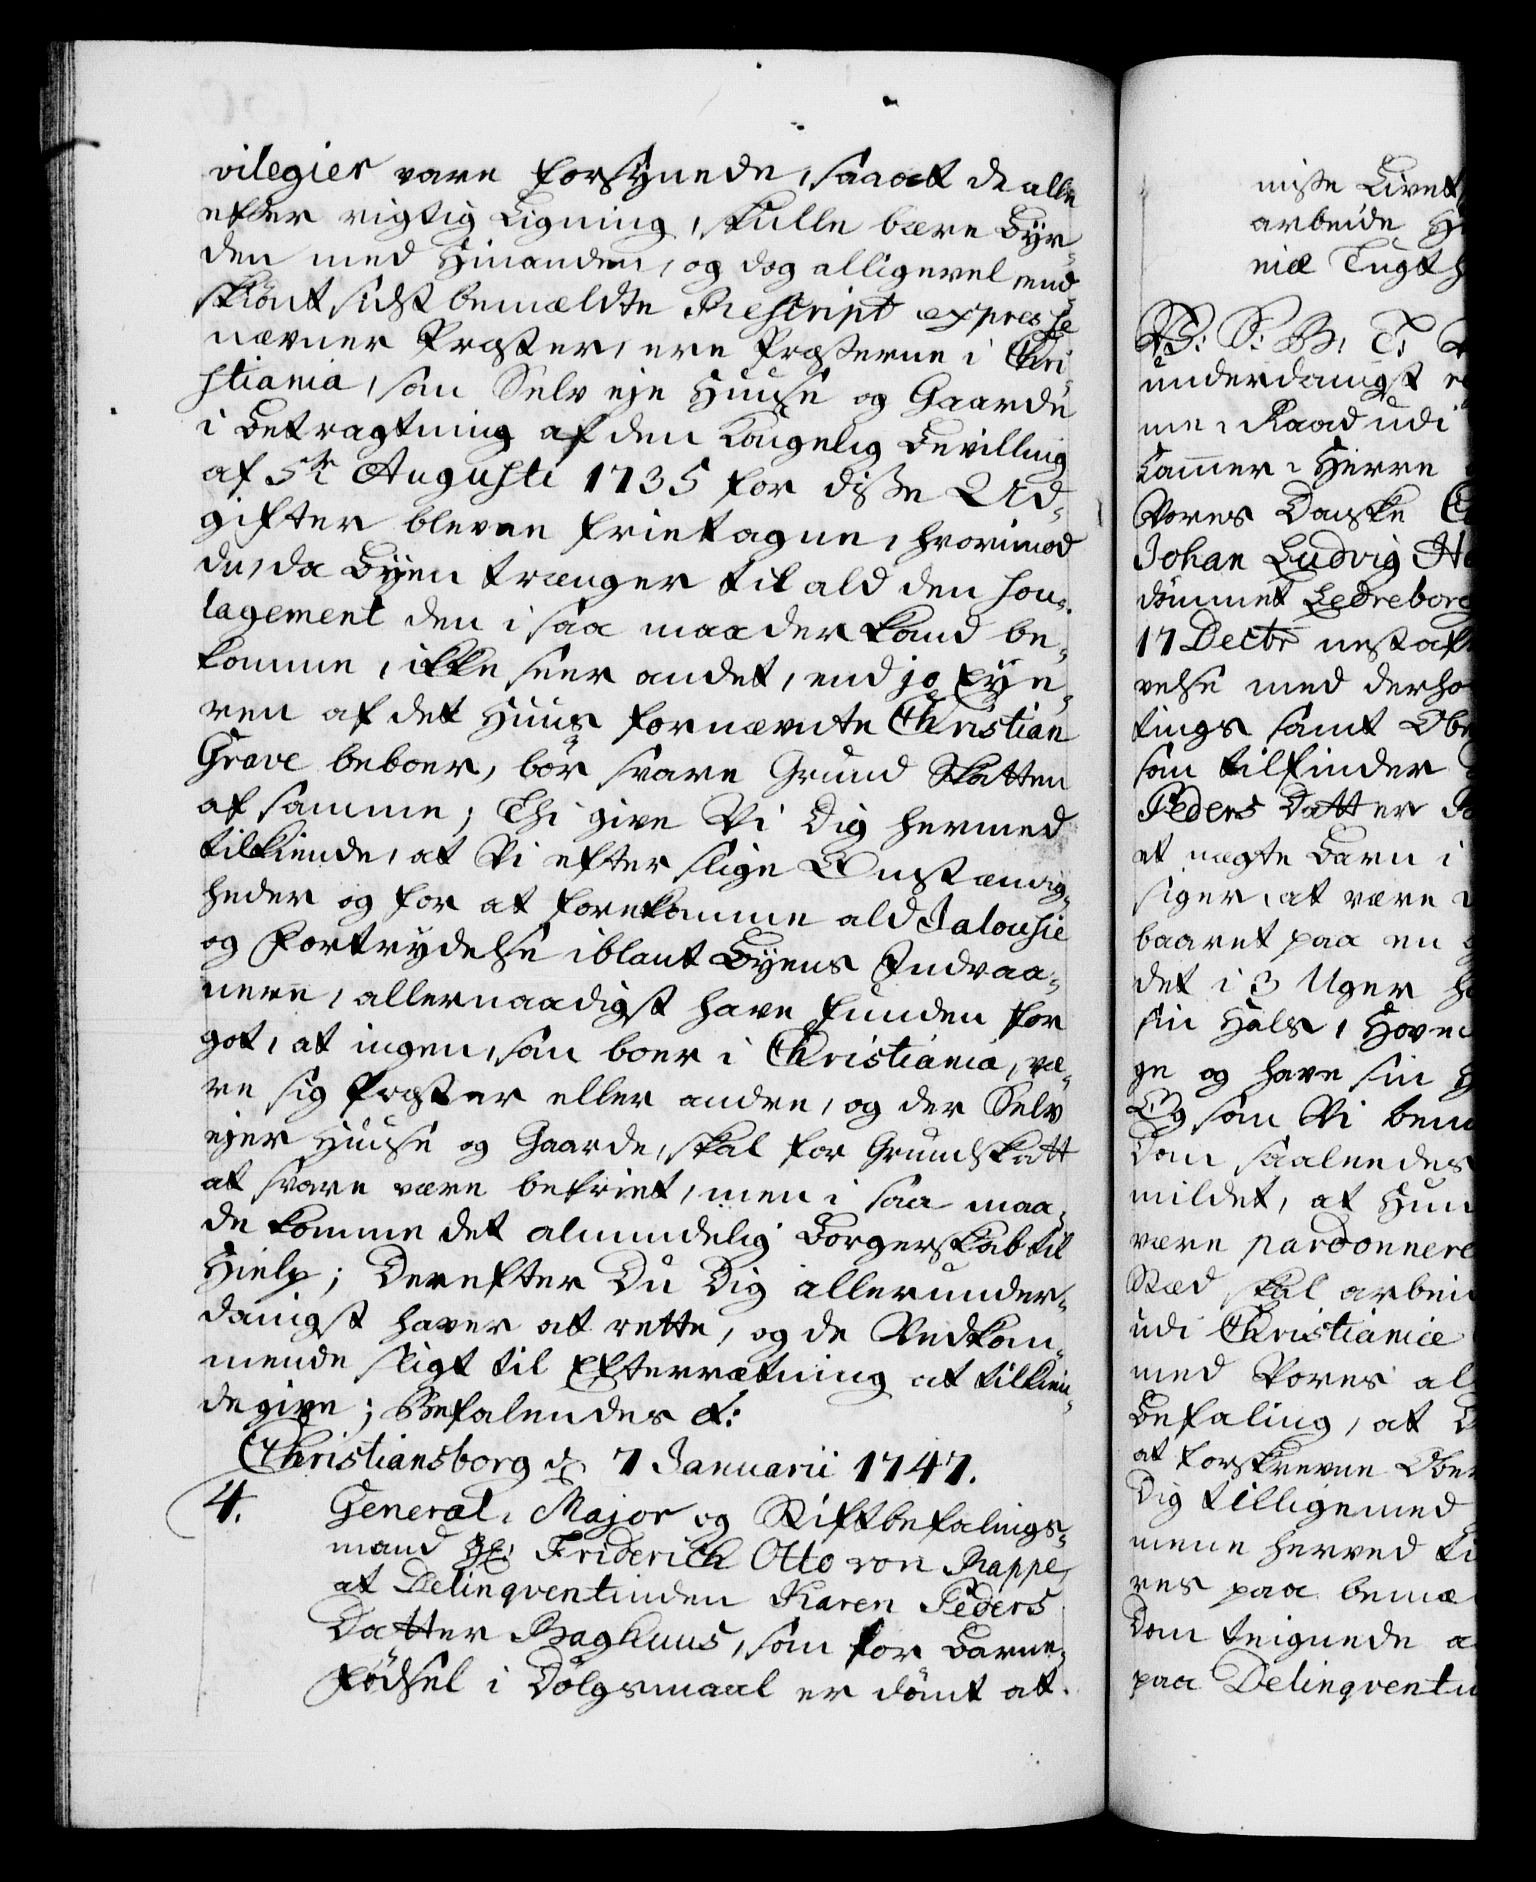 vilegier vare forsynede, saa at de alle
efter rigtig Ligning, skulle bære Byr-
den med Hinanden, og dog alligevel end-
skiönt sidst bemældte Rescript expresse
nævner Præster, ere Præsterne i Chri-
stiania, som Selv eje Huuse og Gaarde
i betragtning af den Kongelig Bevilling
af 5te Augusti 1735 for disse Ud-
gifter blevne frietagne, hvorimod
du, da Byen trænger til ald den Sou-
lagement den i saa maader kand be-
komme, ikke seer andet, end jo Eye-
ren af det Huus fornævnte Christian
Grave beboer, bör svare Grund Skatten
af samme; Thi give Vi Dig hermed
tilkiende, at Vi efter slige Omstændig-
heder og for at forekomme ald Jalousie
og Fortrydelse iblant Byens Indvaa-
nere, allernaadigst have funden for
got, at ingen, som boer i Christiania, væ-
re sig Præster eller andre, og der Selv
ejer Huuse og Gaarde, skal for Grundskatt
at svare være befriet, men i saa maa-
de komme det almindelig Borgerskab til
Hielp; Derefter Du Dig allerunder-
danigst haver at rette, og de Vedkom-
mende sligt til Efterretning at tilkien-
degive; Befalendes &:
Christiansborg d. 7 Januarii 1747.
4. General-Major og Stiftbefalings-
mand Hr. Friderich Otto von Rappe,
at Delinqventinden Karen Peders
Datter Baghuus, som for Barne-
födsel i Dölgsmaal er dömt at
misse Livet
arbeide
niæ Tugt
V: S: G: T:
underdanigst
me-Raad udi
Cammer-Herre
Vores Danske
Johan Ludvig
dömmet Ledreborg
17 Decbr nestaf
velse med derho
tings samt Obe
som tilfinder
Peders Datter
et uægte Barn i
siger, at være
baaret paa en
det i 3 Uger
sin Hals, Hoved
ge og have sin
Og som Vi bem
Dom saaledes
mildet, at Hun
være pardonnere
Stæd skal arbei
udi Christianiæ
med Vores al
Befaling, at
at forskrevne Ober
Dig tilligemed
mene herved
res paa bemæ
Dom teignede
paa Delinqventi